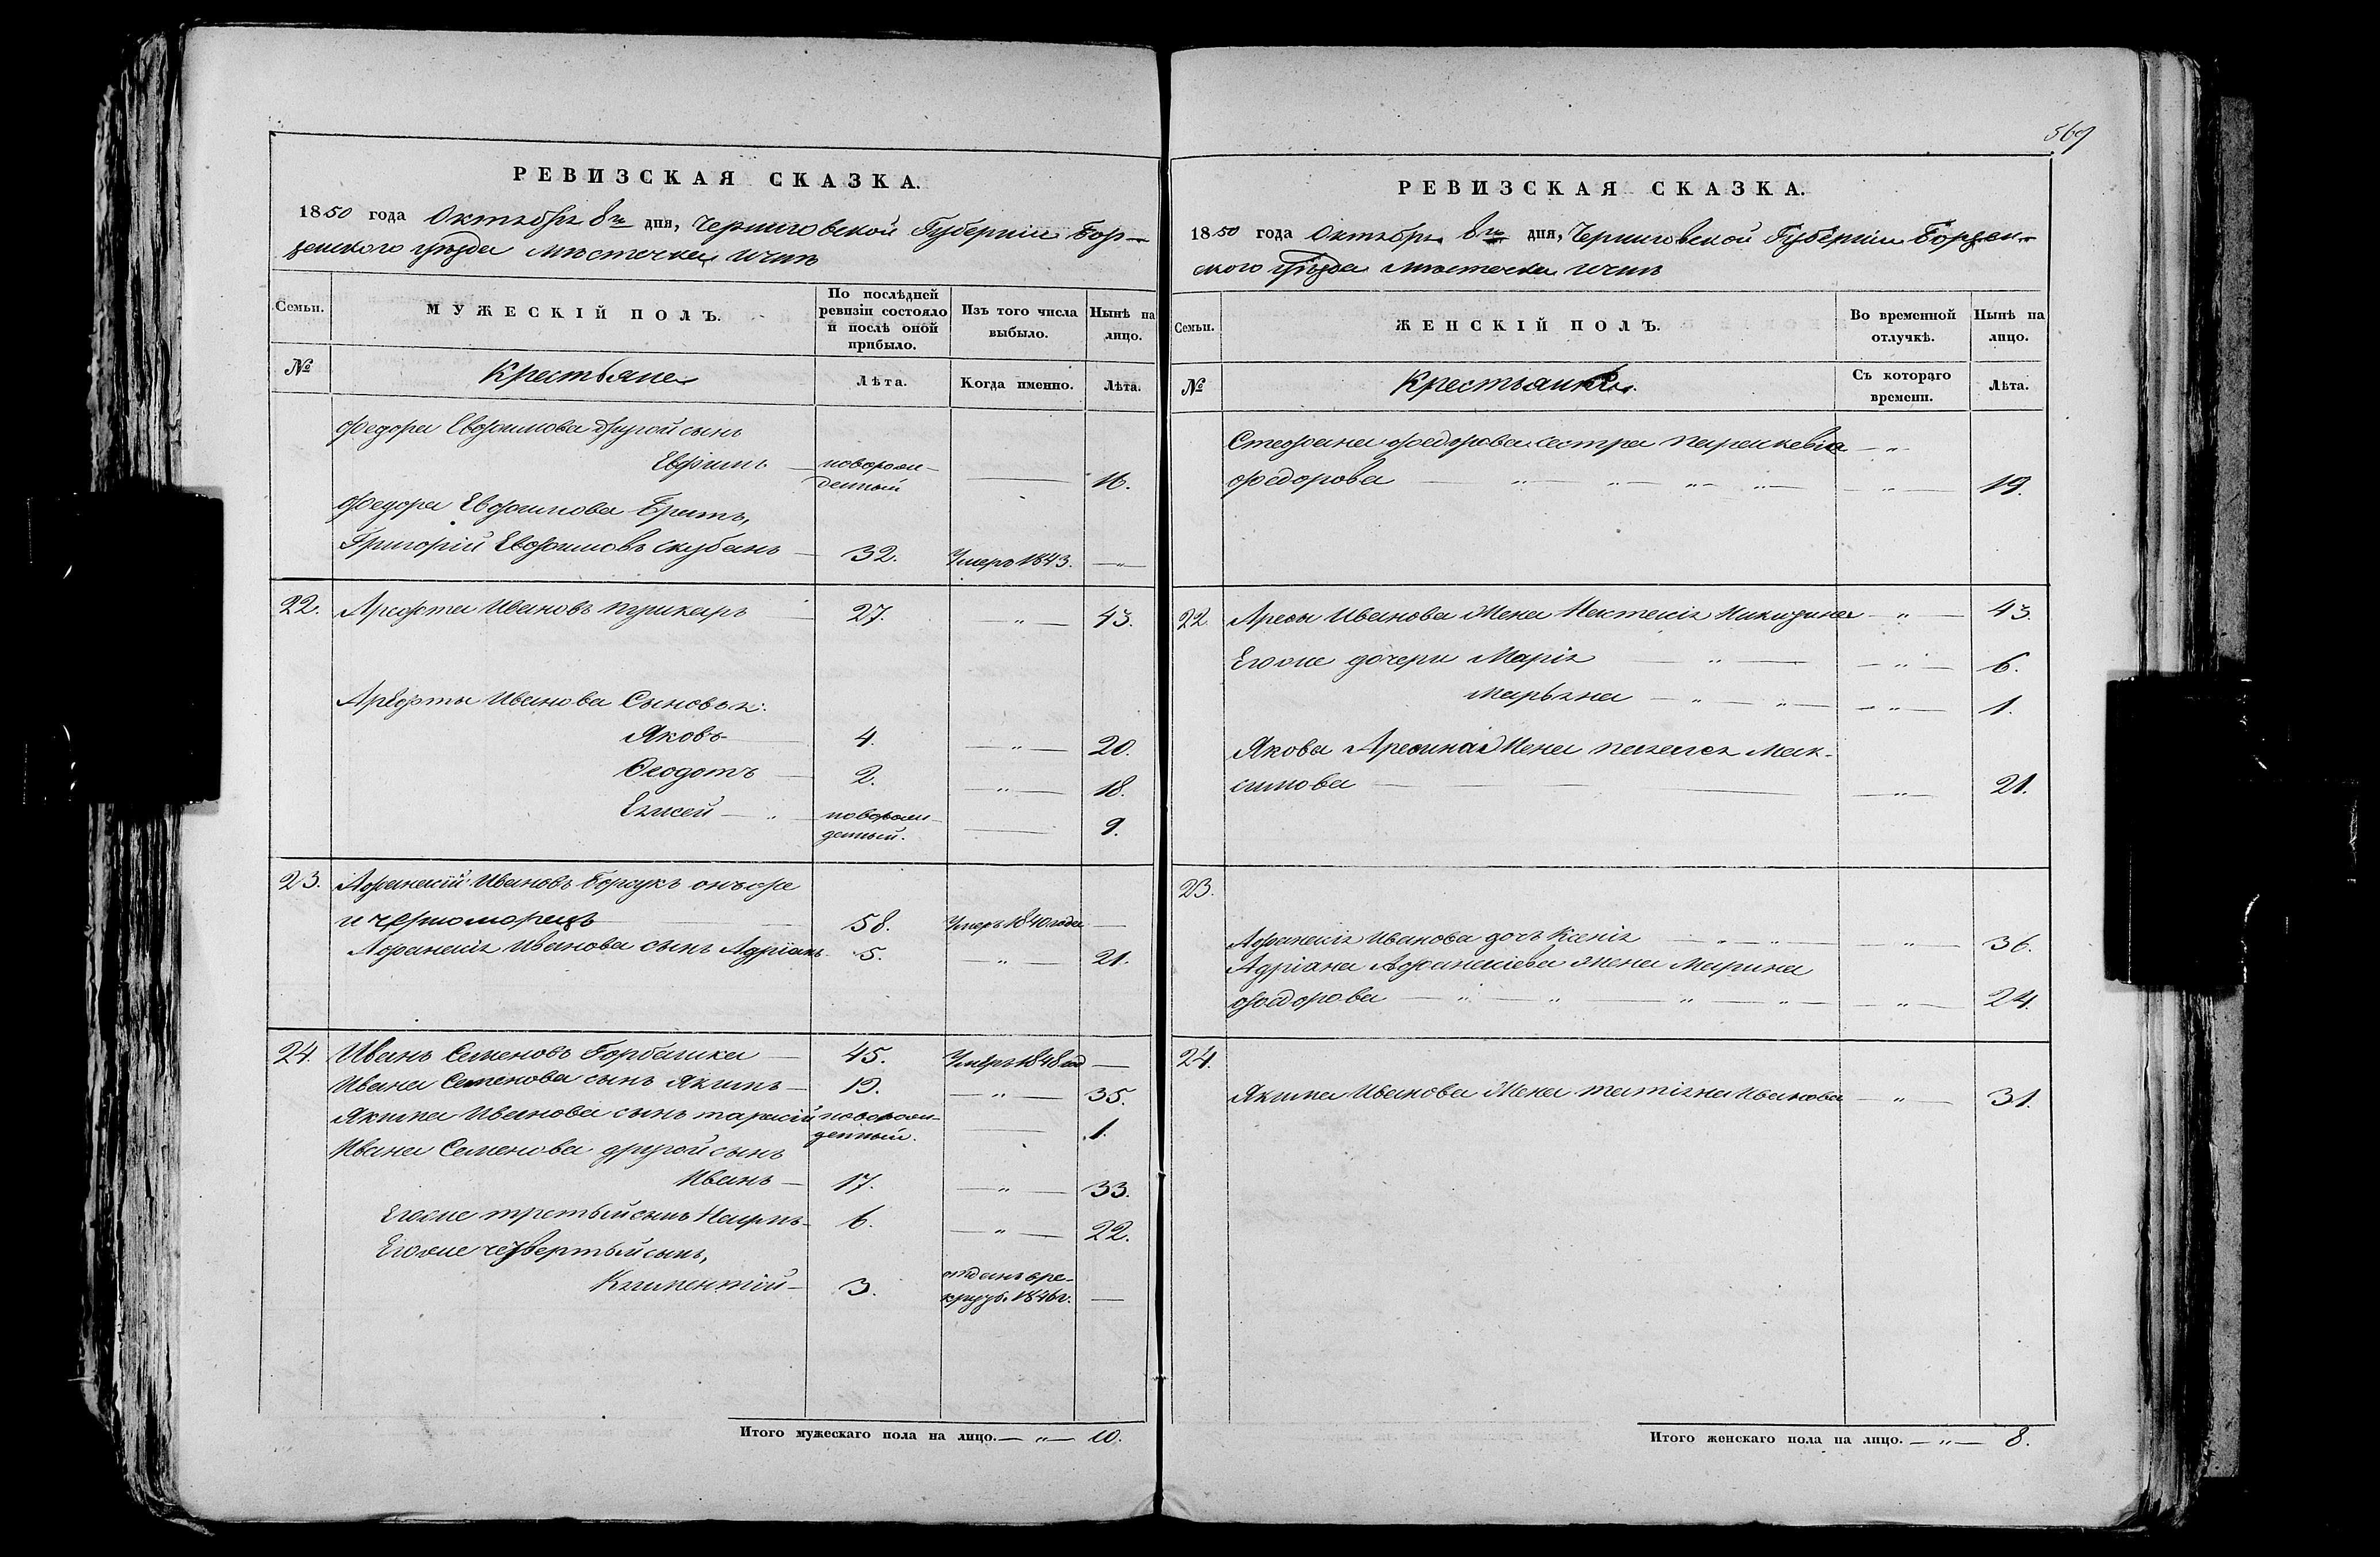 РЕВИЗСКАЯ СКАЗКА.
1850 года Октября 8го дня, Черниговской Губернии Бор-
зенского уѣзда мѣстечка Ични
Семьи.
МУЖЕСКІЙ ПОЛЪ.
По послѣдней ревизіи состояло и послѣ оной прибыло.
Изъ того числа выбыло.
Нынѣ на лицо.
№
Крестьяне
Лѣта.
Когда именно.
Лѣта.
Федора Евфимова другой сынъ
Евфимъ — новорож-
денный — 16.
Федора Евфимова Братъ,
Григорій Евфимовъ Скубакъ — 32. Умеръ 1843. — " —
22. Арефта Ивановъ Пушкаръ — 27. — " — 43.
Арефты Иванова Сыновья:
Яковъ — 4. — " — 20.
Феодотъ — 2. — " — 18.
Елисей — " — новорож-
денный. — 9.
23. Афанасій Ивановъ Борсукъ онъ же
и Черноморецъ — 58. Умеръ 1840 года —
Афанасія Иванова сынъ Адріанъ 5. — " — 21.
24. Иванъ Семеновъ Горбашка — 45. Умеръ 1848 год —
Ивана Семенова сынъ Якимъ — 19. — " — 35.
Якима Иванова сынъ Тарасій новорож-
денный. — 1.
Ивана Семенова другой сынъ
Иванъ — 17. — " — 33.
Его же третьий сынъ Наумъ — 6. — " — 22.
Его же четвертый сынъ,
Климентій — 3. отданъ в ре-
круты 1846 г. —
Итого мужескаго пола на лицо. — " — 10.
569
РЕВИЗСКАЯ СКАЗКА.
1850 года Октября 8го дня, Черниговской Губерніи Борзен-
ского уѣзда мѣстечка Ични
Семьи.
ЖЕНСКІЙ ПОЛЪ.
Во временной отлучкѣ.
Нынѣ на лицо.
№
Крестьянки.
Съ котораго времени.
Лѣта.
Стефана Федорова сестра Параскевіа — " —
Федорова — " — " — " — " — " — 19.
22. Арефы Иванова Жена Настасія Никитина — " — 43.
Его же дочери Марія — " — " — 6.
Марьяна — " — " — " — 1.
Якова Арефина Жена Пелагея Мак-
симова — " — 21.
23.
Афанасія Иванова дочь Ксенія — " — " — " — 36.
Адріана Афанасіева Жена Марина
Федорова — " — " — " — " — " — 24.
24.
Якима Иванова Жена Татіяна Иванова — " — 31.
Итого женскаго пола на лицо. — " — 8.